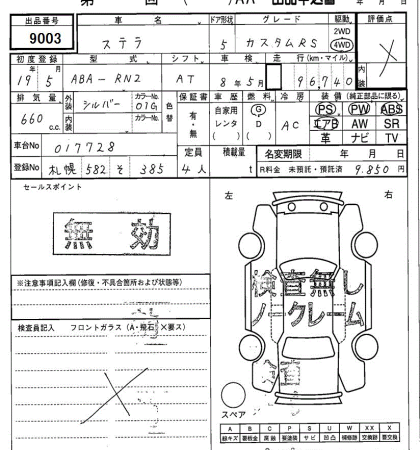 出品番号 車名 ドア形状 グレード 駆動 評価点
9003 ステラ 5 カスタムRS 2WD 4WD
初度登録 型式 シフト 車検 走行(km・マイル) 内装
19年5月 ABA-RN2 AT 8年5月 96,740
排気量 外装 シルバー カラーNo. 01G 色替 保証書 車歴 燃料 冷房 装備(純正部品に限る)
660 c.c. 内装 カラーNo. 有・無 自家用 レンタ G D AC PS PW ABS
エアB AW SR
革 ナビ TV
車台No 017728 定員 積載量 名変期限 年 月 日
登録No 札幌 582 そ 385 4人 t R料金 未預託・預託済 9,850円
セールスポイント
左 右
無効
検査無し
ノークレーム
※注意事項記入欄(修復・不具合箇所および状態等)
検査員記入 フロントガラス(A・飛石)×要ス)
スペア
A B C P S U W XX X
線キズ 要板金 腐蝕 要塗装 サビ 凹凸 補修跡 交換跡 要交換